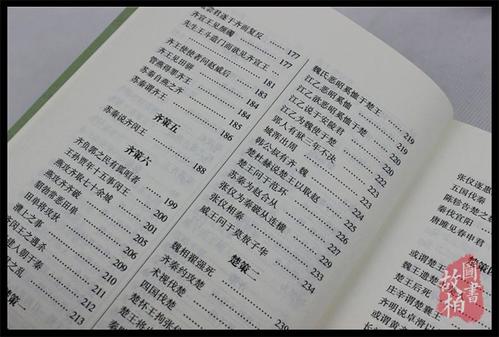 齐宣王见颜斶 177
先生王斗造门而欲见齐宣王 177
齐王使使者问赵威后 181
齐王见田骈 183
管燕得罪齐王 184
苏秦自燕之齐 184
苏秦谓齐王 185
186
齐策五
苏秦说齐闵王 188
齐策六
齐负郭之民有孤狐咺者 199
王孙贾年十五事闵王 200
燕攻齐取七十余城 201
燕攻齐齐破 205
貂勃常恶田单 206
田单将攻狄 209
濮上之事 210
齐闵王之遇杀 210
212
213
魏氏恶昭奚恤于楚王 219
江乙恶昭奚恤 219
江乙欲恶昭奚恤于楚 220
江乙说于安陵君 221
江乙为魏使于楚 222
郢人有狱三年不决 223
城浑出周 223
韩公叔有齐魏 224
楚杜赫说楚王以取赵 225
楚王问于范环 226
苏秦为赵合从 227
张仪为秦破从连横 229
张仪相秦 233
威王问于莫敖子华 234
楚策二
魏相翟强死
齐秦约攻楚
术视伐楚
四国伐楚
楚怀王拘张仪
楚王将出张子
五国伐秦
陈轸告楚之魏
秦伐宜阳
唐雎见春申君
或谓楚王
魏王遗楚王
楚王后死
庄辛谓楚襄王
齐明说卓滑以
或谓黄
故柏
圖書